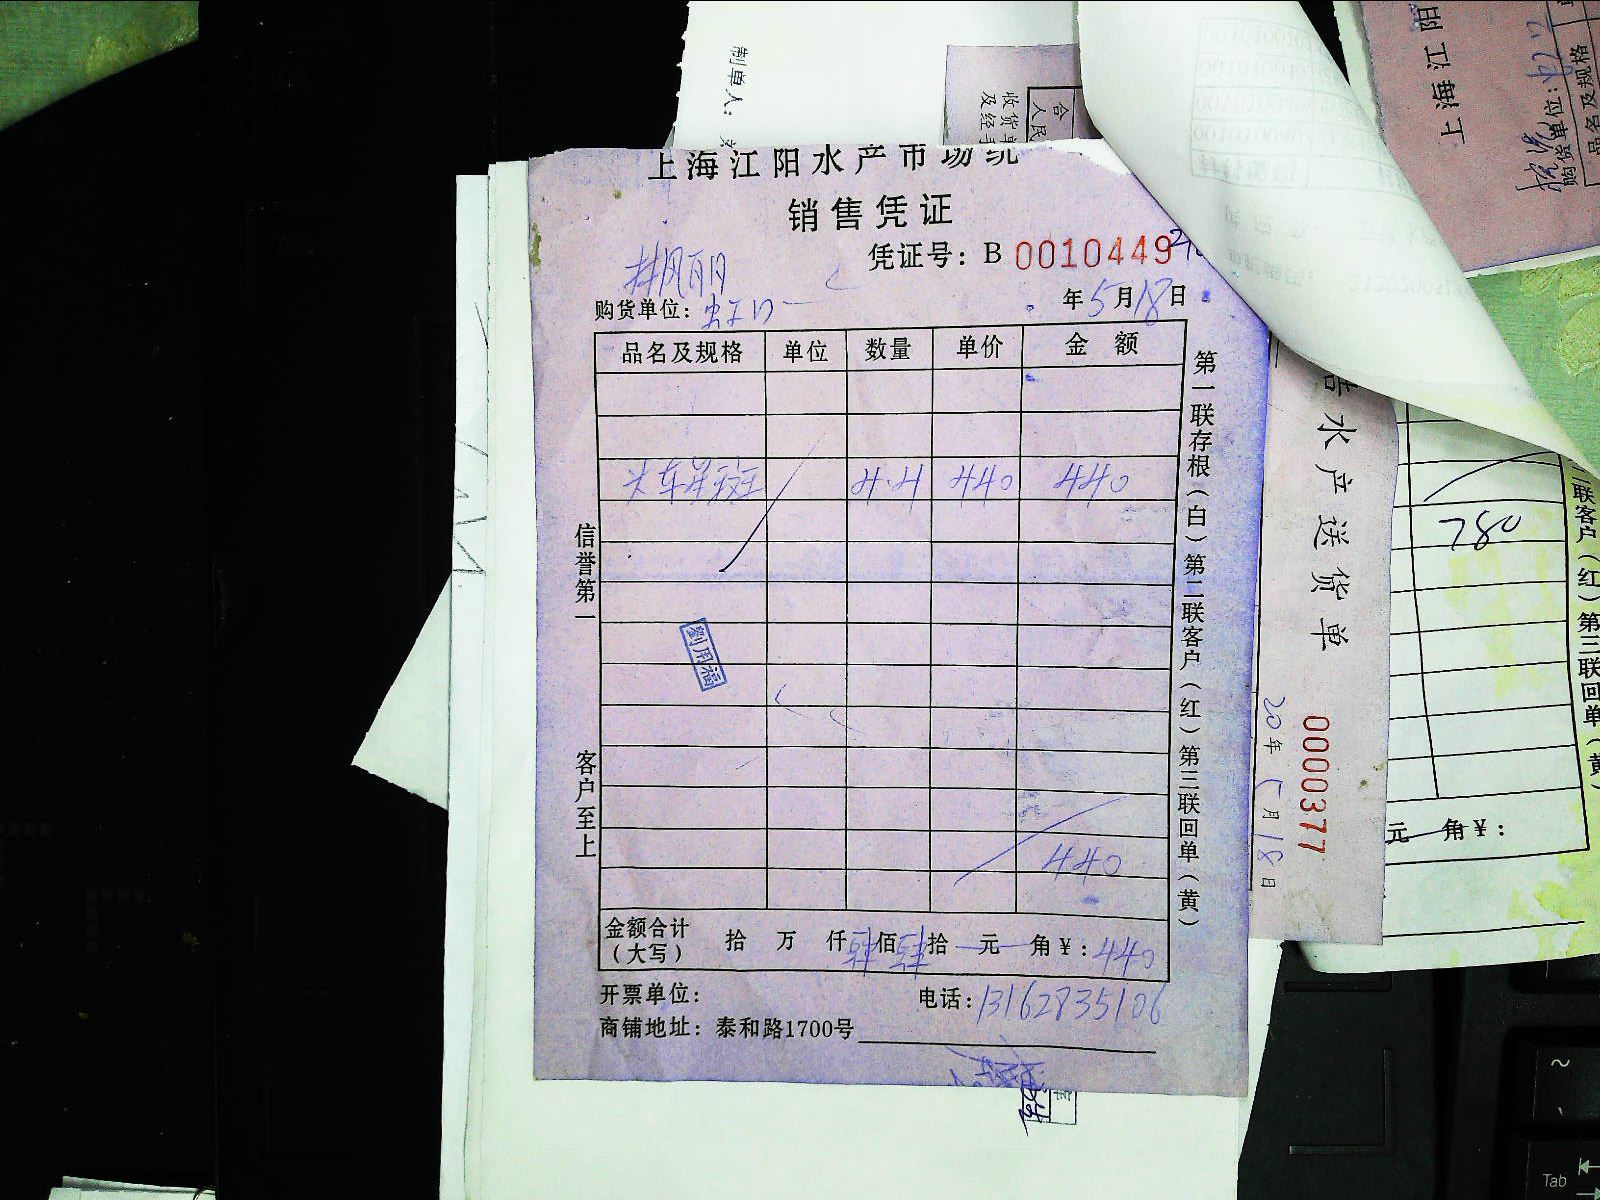 制单人：
合
人民
收货单
及经手
上海江阳
购货单位：虹口
品名及规格
上海江阳水产市场统
销售凭证
凭证号：B 0010449
购货单位：虹口
年5月18日
品名及规格 单位 数量 单价 金额
星斑 4.4 440 440
440
金额合计（大写） 拾 万 仟肆佰肆拾 元 角￥：440
开票单位： 电话：13162835106
商铺地址：泰和路1700号
信誉第一 客户至上
第一联存根（白）第二联客户（红）第三联回单（黄）
劉用福
水产送货单
0000377
20年5月18日
780
元 角￥：
联客户（红）第三联回单（黄）
~
Tab